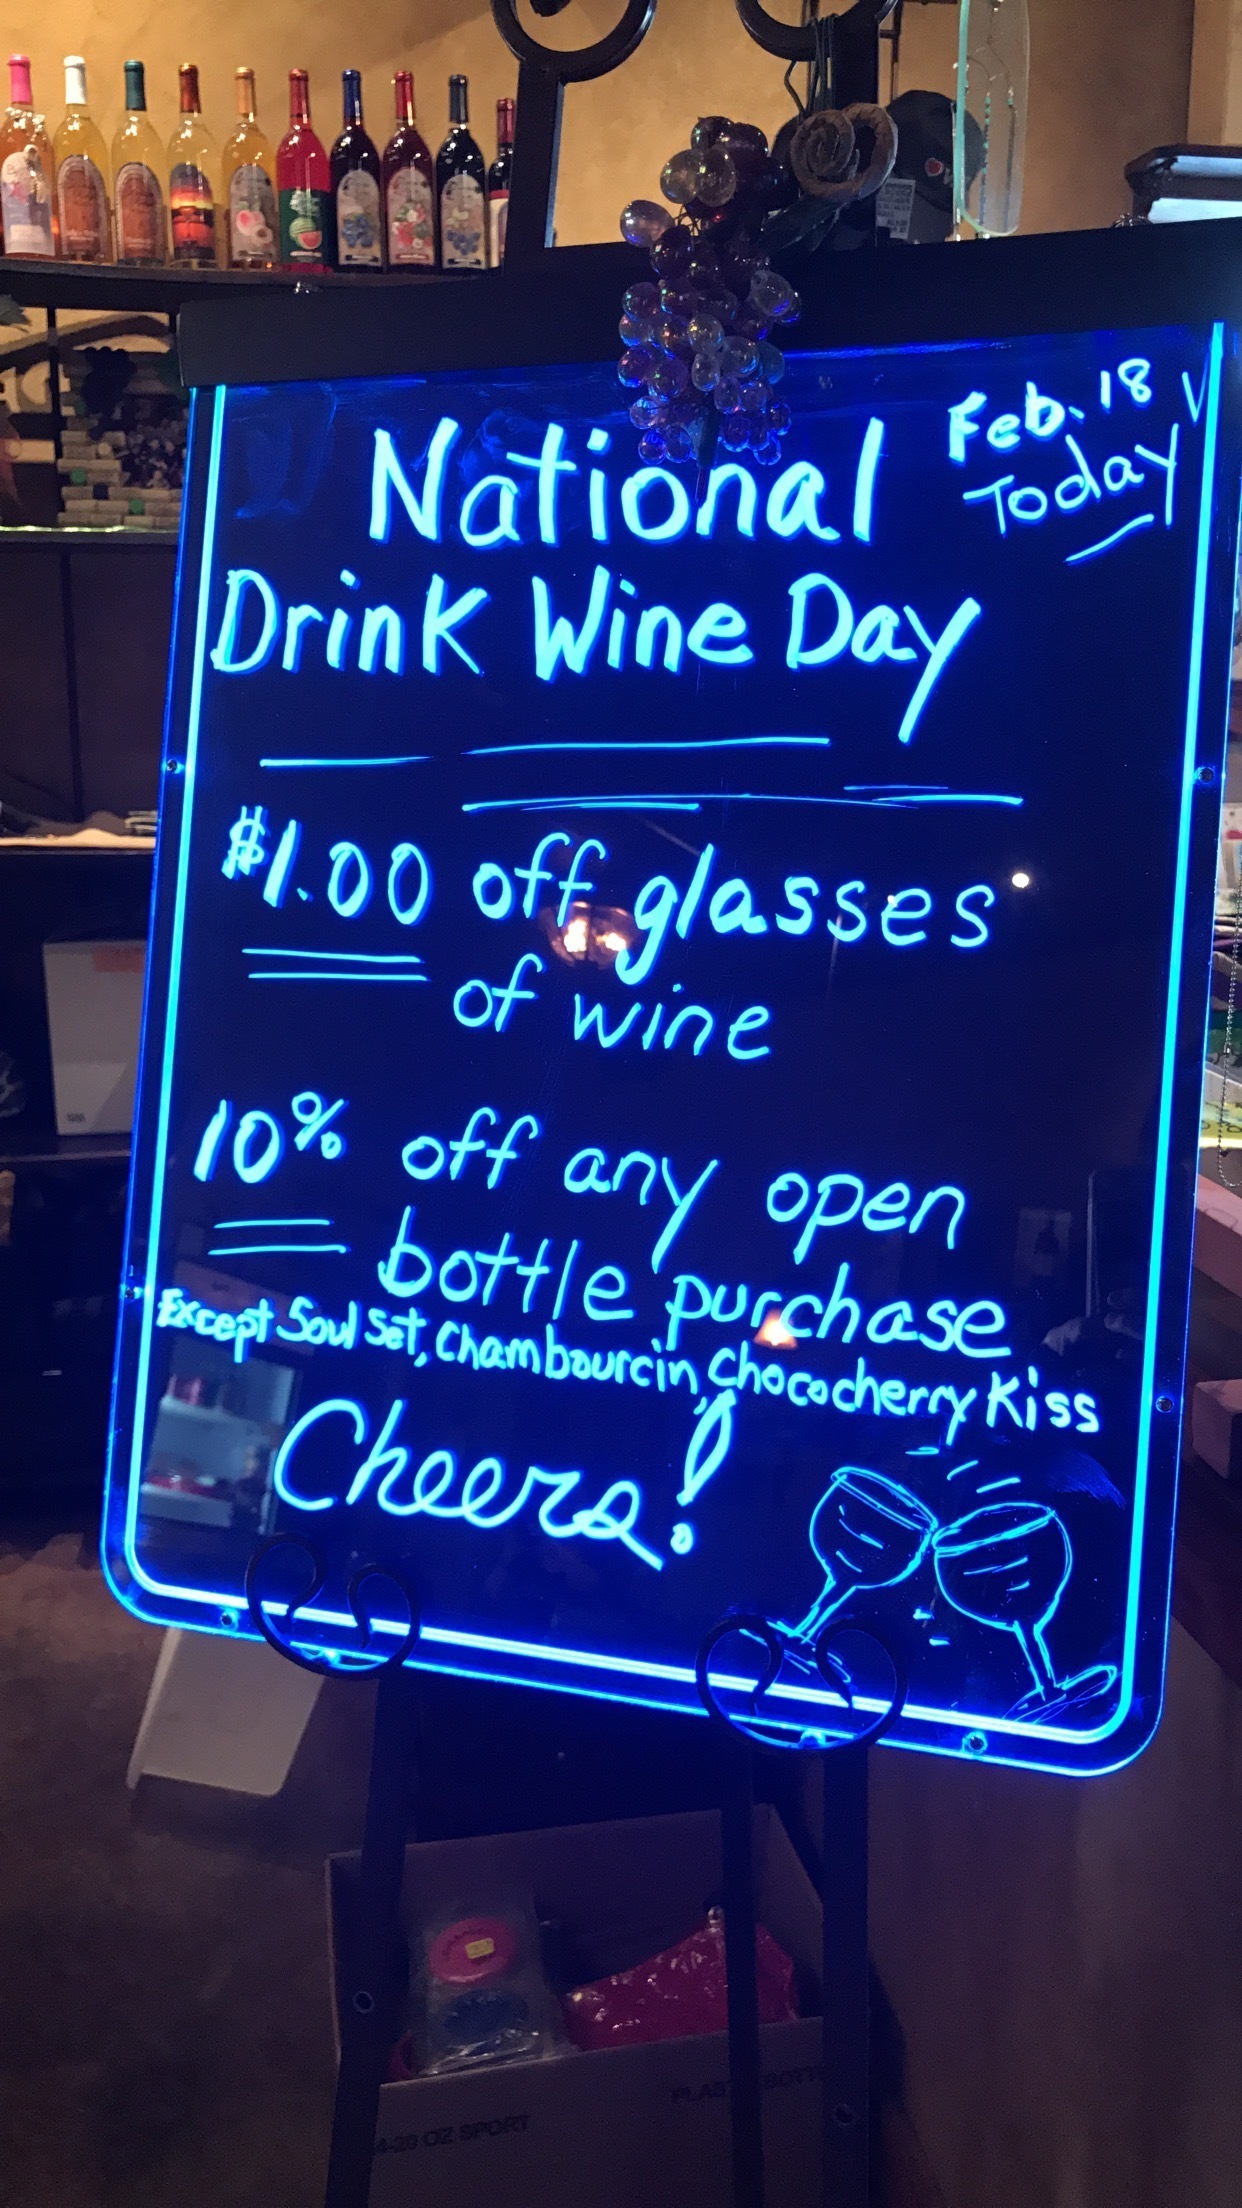 Feb. 18
Today
National
Drink Wine Day
$1.00 off glasses
of wine
10% off any open
bottle purchase
Except Soul Set, Chambourcin, Chococherry Kiss
Cheers!
OZ SPORT